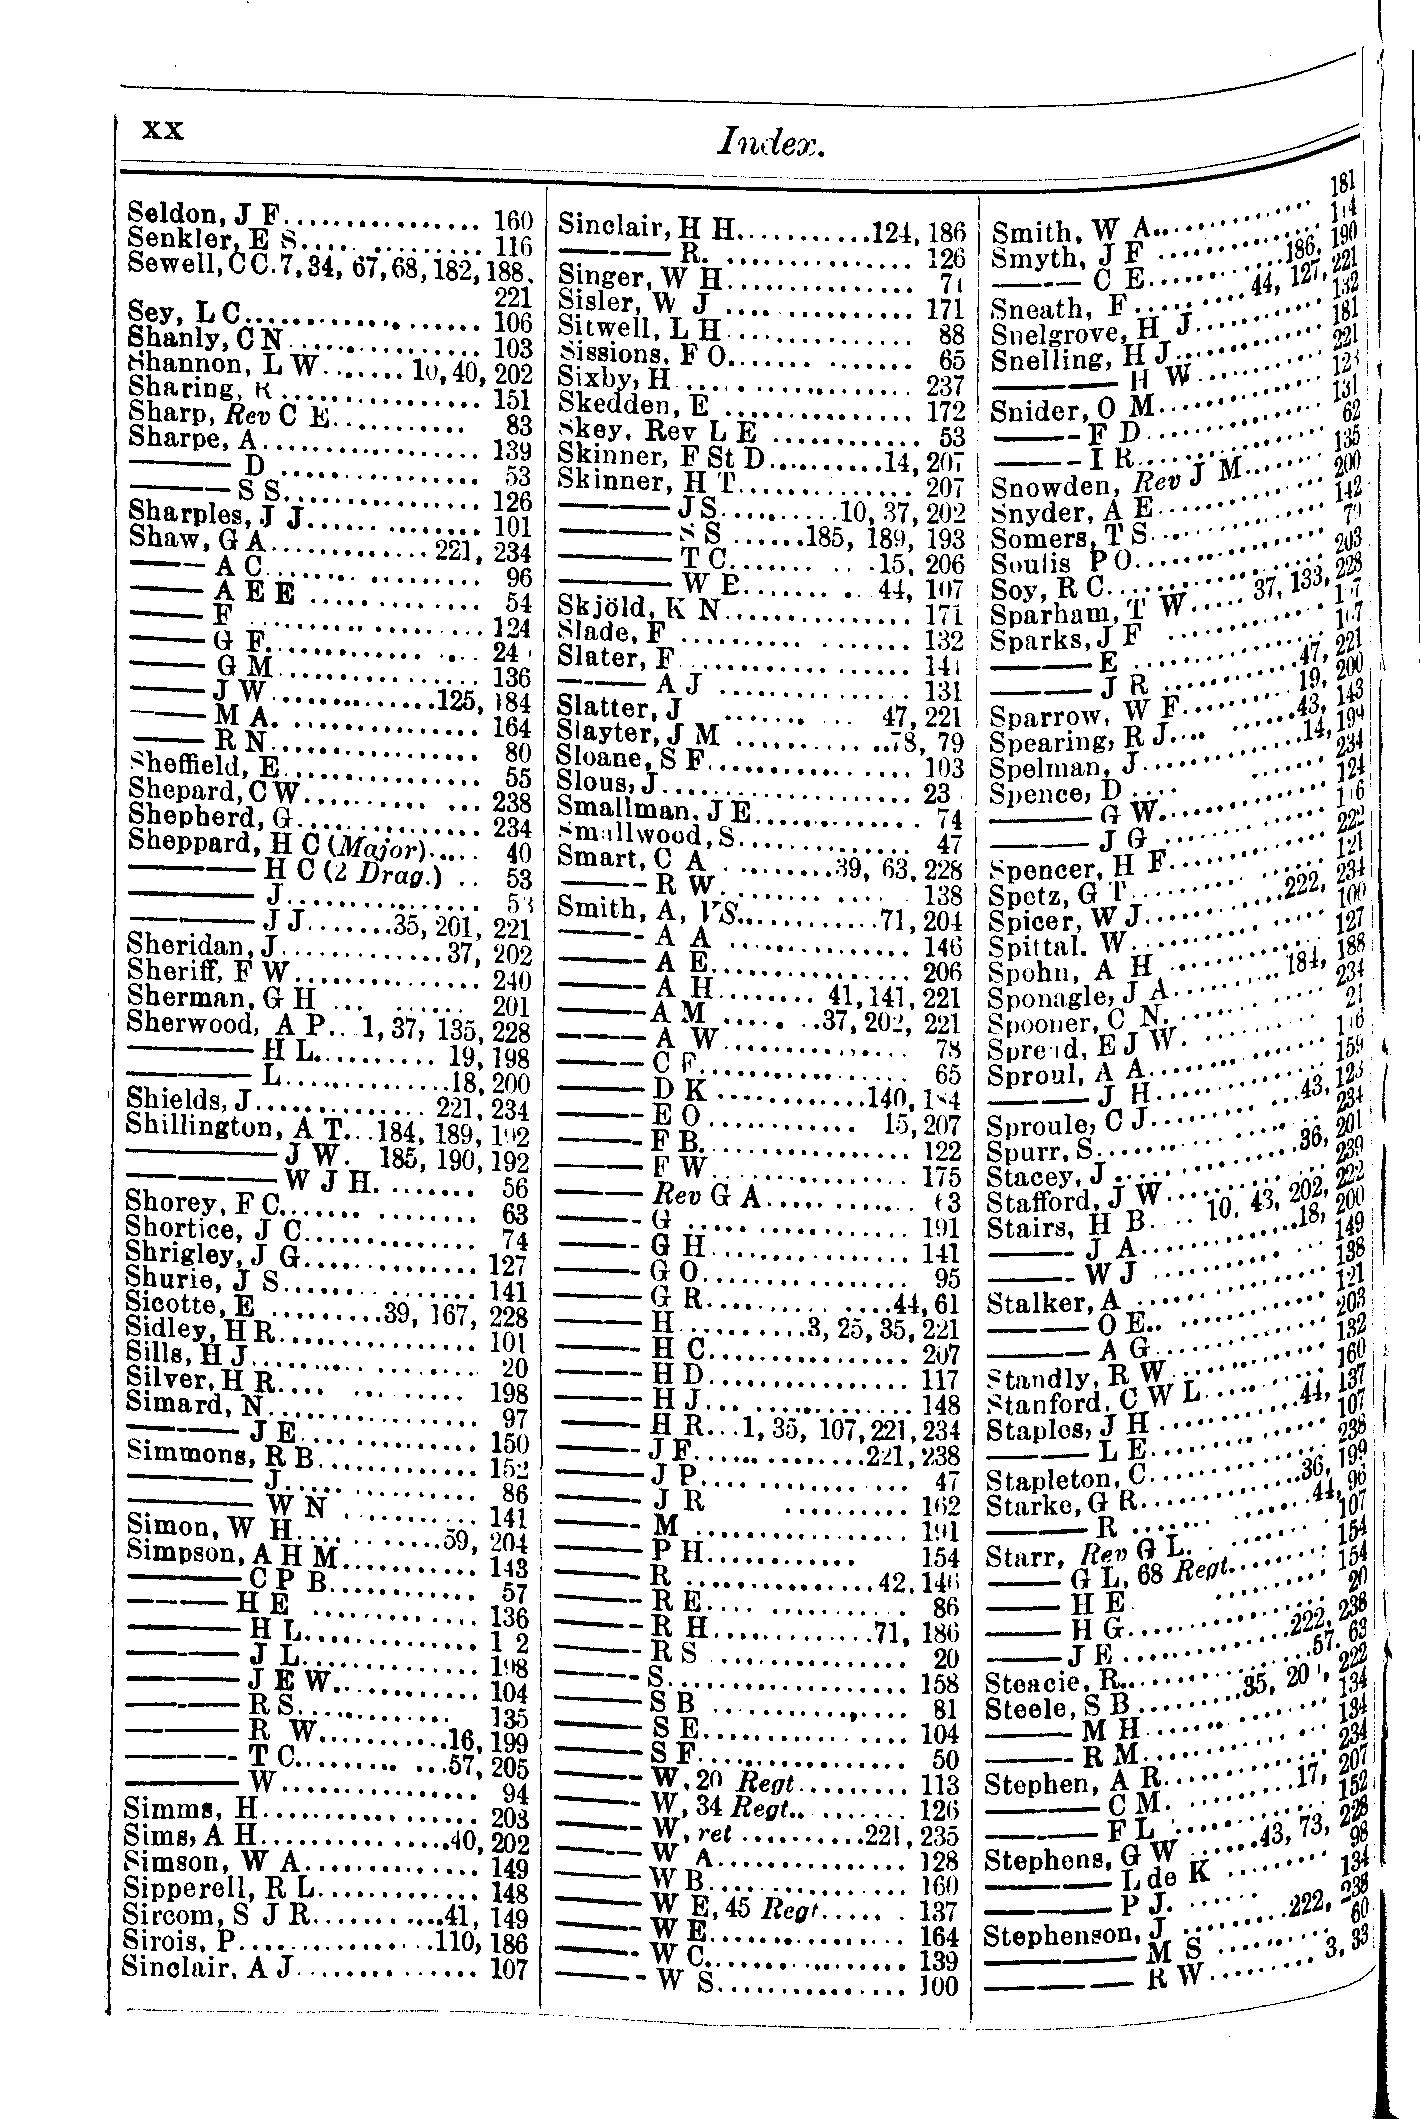 xx
Index.
Seldon, J F................ 160
Senkler, E S.... .......... 116
Sewell, C C. 7, 34, 67, 68, 182, 188,
221
Sey, L C................... 106
Shanly, C N................ 103
Shannon, L W....... 10, 40, 202
Sharing, R ................ 151
Sharp, Rev C E........... 83
Sharpe, A.................. 139
——— D ................ 53
——— S S................ 126
Sharples, J J...... ........ 101
Shaw, G A............. 221, 234
——— A C................ 96
——— A E E ............. 54
——— F ................. 124
——— G F................ 24
——— G M................ 136
——— J W............125, 184
——— M A. .............. 164
——— R N................ 80
Sheffield, E............... 55
Shepard, C W.......... ... 238
Shepherd, G................ 234
Sheppard, H C (Major)..... 40
——— H C (2 Drag.) .. 53
——— J................ 53
——— J J.......35, 201, 221
Sheridan, J.............37, 202
Sheriff, F W............... 240
Sherman, G H ... ....... 201
Sherwood, A P.. 1, 37, 135, 228
——— H L.......... 19, 198
——— L.............18, 200
Shields, J.............. 221, 234
Shillington, A T...184, 189, 192
——— J W. 185, 190, 192
——— W J H. ....... 56
Shorey, F C...... ........ 63
Shortice, J C.............. 74
Shrigley, J G.............. 127
Shurie, J S....... ....... 141
Sicotte, E ........39, 167, 228
Sidley, H R............... 101
Sills, H J......... ........ 20
Silver, H R.... .......... 198
Simard, N................ 97
——— J E.............. 150
Simmons, R B............. 152
——— J................ 86
——— W N ........... 141
Simon, W H.... .......59, 204
Simpson, A H M........... 143
——— C P B............ 57
——— H E ............. 136
——— H L.............. 1 2
——— J L.............. 198
——— J E W............ 104
——— R S............. 135
——— R W...........16, 199
——— T C......... ...57, 205
——— W............... 94
Simms, H................. 203
Sims, A H..............40, 202
Simson, W A.............. 149
Sipperell, R L............. 148
Sircom, S J R..........41, 149
Sirois, P...............110, 186
Sinclair, A J.............. 107
Sinclair, H H...........124, 186
——— R. ............... 126
Singer, W H............... 71
Sisler, W J .... ........... 171
Sitwell, L H............... 88
Sissions, F O...... ....... 65
Sixby, H .................. 237
Skedden, E ............... 172
Skey, Rev L E ............ 53
Skinner, F St D..........14, 207
Skinner, H T.............. 207
——— J S..........10, 37, 202
——— S S ......185, 189, 193
——— T C....... . . .15, 206
——— W B....... .. 44, 107
Skjöld, K N............... 171
Slade, F ......... ....... 132
Slater, F.................. 141
——— A J ............... 131
Slatter, J ....... ... 47, 221
Slayter, J M .............78, 79
Sloane, S F................ 103
Slous, J................... 23
Smallman, J E............. 74
Smallwood, S.............. 47
Smart, C A . ........39, 63, 228
——— R W......... ..... 138
Smith, A, VS...........71, 204
——— A A .............. 146
——— A E............... 206
——— A H........ 41, 141, 221
——— A M ..... ..37, 202, 221
——— A W.............. 78
——— C F............... 65
——— D K............140, 184
——— E O............ 15, 207
——— F B............... 122
——— F W.............. 175
——— Rev G A........... 63
——— G ................ 191
——— G H.............. 141
——— G O............... 95
——— G R......... ....44, 61
——— H ..........3, 25, 35, 221
——— H C............... 207
——— H D............... 117
——— H J... ........... 148
——— H R...1, 35, 107, 221, 234
——— J F..............221, 238
——— J P............... 47
——— J R ......... 162
——— M ................ 191
——— P H............ 154
——— R ...............42, 146
——— R E.... ......... 86
——— R H............71, 186
——— R S .............. 20
——— S................. 158
——— S B .............. 81
——— S E.............. 104
——— S F.............. 50
——— W, 20 Regt......... 113
——— W, 34 Regt......... 126
——— W, ret ..........221, 235
——— W A.............. 128
——— W B.............. 160
——— W E, 45 Regt..... . 137
——— W E............... 164
——— W C............... 139
——— W S............... 100
Smith, W A.............. 181
Smyth, J F .............. 114
——— C E...........186, 190
Sneath, F .........44, 127, 221
Snelgrove, H J........... 132
Snelling, H J............. 181
——— H W.......... 221
Snider, O M.............. 123
——— F D.............. 131
——— I R.............. 62
Snowden, Rev J M....... 135
Snyder, A E.............. 200
Somers, T S.............. 142
Soulis P O............... 79
Soy, R C................. 203
Sparham, T W..... 37, 133, 228
Sparks, J F .............. 117
——— E ................ 107
——— J R ............47, 221
Sparrow, W F......... 19, 200
Spearing, R J.... ......43, 143
Spelman, J.............14, 199
Spence, D .... ....... 234
——— G W............. 124
——— J G .............. 116
Spencer, H F............. 222
Spetz, G T............... 121
Spicer, W J............222, 234
Spittal. W................ 100
Spohn, A H .............. 127
Sponagle, J A..........184, 188
Spooner, C N............. 234
Spread, E J W............ 21
Sproul, A A.............. 116
——— J H.............. 159
Sproule, C J......... ...43, 123
Spurr, S................. 234
Stacey, J ..............36, 201
Stafford, J W............. 239
Stairs, H B.... 10, 43, 202, 222
——— J A.............18, 200
——— W J .............. 149
Stalker, A ............... 138
——— O E.............. 121
——— A G.............. 203
Standly, R W............. 132
Stanford, C W L.......... 160
Staples, J H............44, 137
——— L E.............. 107
Stapleton, C.............. 238
Starke, G R............36, 199
——— R ....... ......44, 96
Starr, Rev G L........... 107
——— G L, 68 Regt........ 154
——— H E ......... 154
——— H G.............. 20
——— J E ............222, 238
Steacie, R..............57. 63
Steele, S B..........35, 20 , 222
——— M H.............. 134
——— R M.............. 134
Stephen, A R............. 234
——— C M. ..........17, 207
——— F L ............. 152
Stephens, G W .....43, 73, 228
——— L de K ........ 98
——— P J. ...... 134
Stephenson, J .........222, 238
——— M S ........ 60
——— R W......... 3, 33